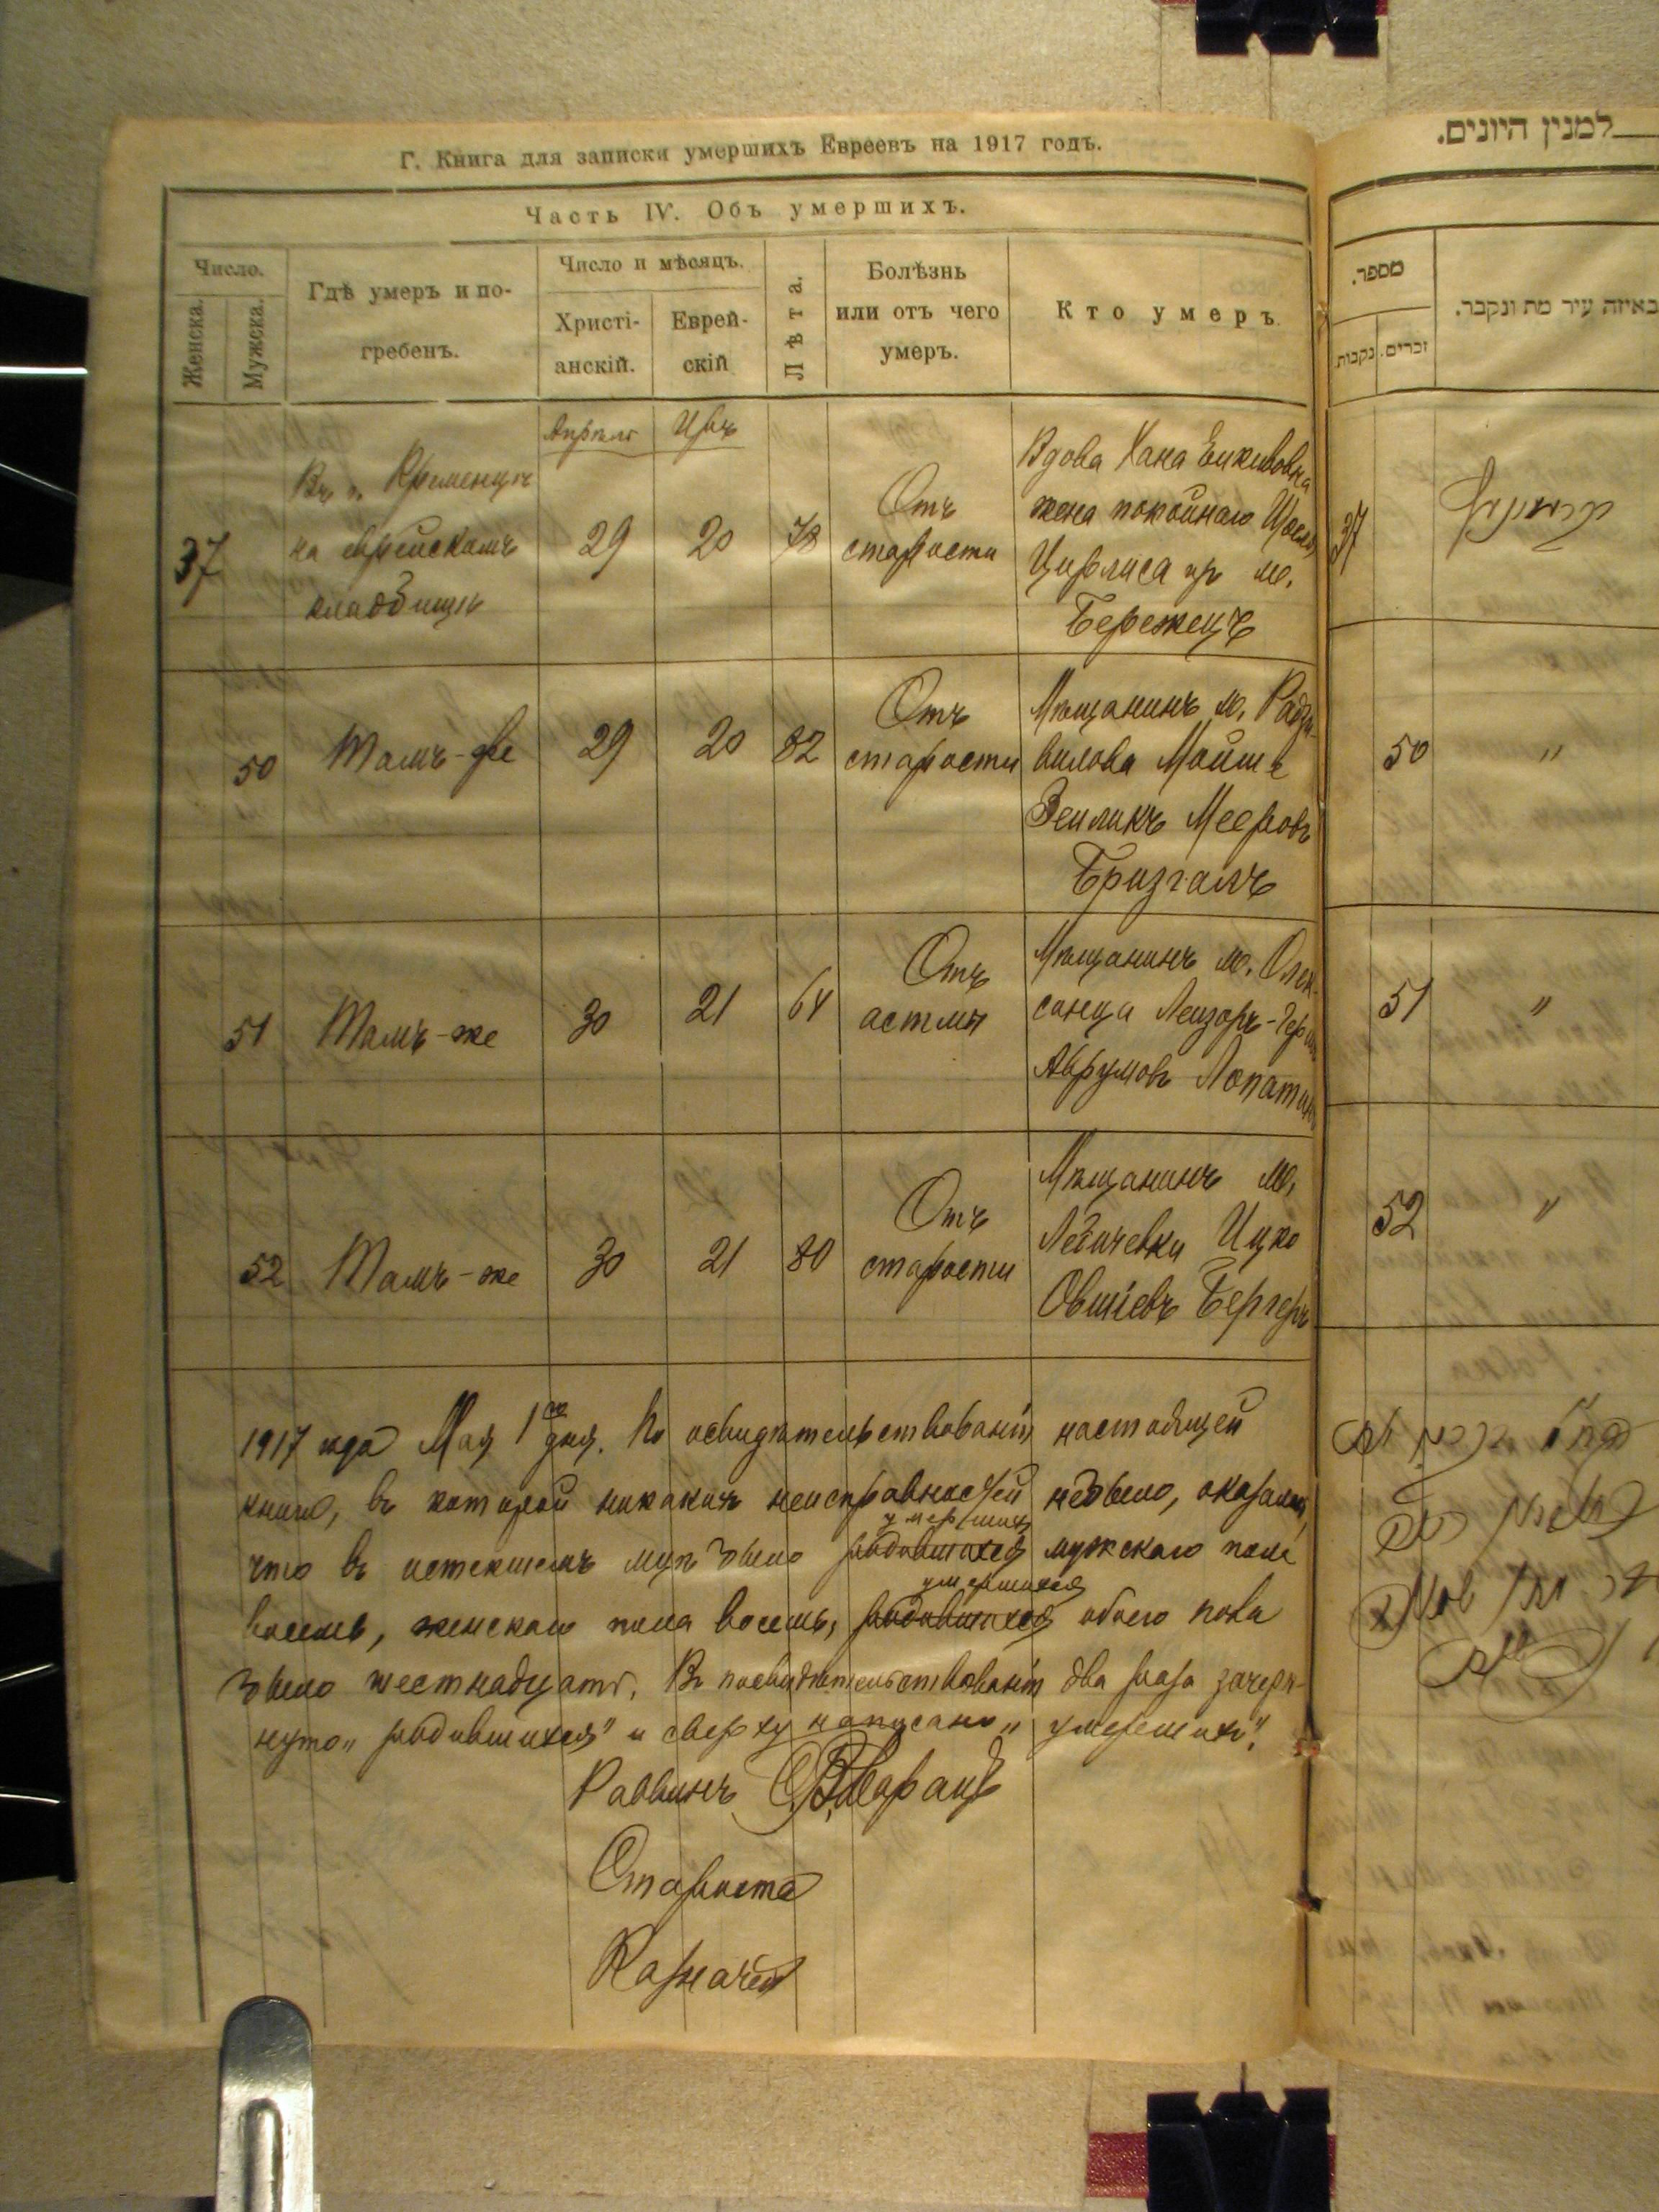 Г. Книга для записки умершихъ Евреевъ на 1917 годъ.
Часть IV. Объ умершихъ.
Число.
Женска.
Мужска.
Гдѣ умеръ и по-
гребенъ.
Число и мѣсяцъ.
Христі-
анскій.
Еврей-
скій
Лѣта.
Болѣзнь
или отъ чего
умеръ.
Кто умеръ.
Апрѣль
37
Въ г. Кременцѣ
на еврейскомъ
кладбищѣ
29
20
78
Отъ
старости
Вдова Хана
жена покойнаго
Цирлиса м.
Бережецъ
50
Тамъ-же
29
20
82
Отъ
старости
Мѣщанинъ м. Радзи-
вилова Мойше
Зейликъ Мееровъ
Бризгалъ
51
Тамъ-же
30
21
64
Отъ
астмы
Мѣщанинъ м. Олек-
синца Лейзоръ-Герш
Аврумовъ Лопатинъ
52
Тамъ-же
30
21
80
Отъ
старости
Мѣщанинъ м.
Ицко
Овшіевъ Бергеръ
1917 года Мая 1го дня. По освидѣтельствованіи настоящей
книги, въ которой никакихъ неисправностей небыло, оказалось,
умершихъ
что въ истекшемъ м-цѣ было родившихся мужскаго пола
умершихся
восемь, женскаго пола восемь, родившихся обоего пола
было шестнадцать. В посвидѣтельствованіи два раза зачерк-
нуто „родившихся" и сверху написано „умершихъ".
Раввинъ
Староста
Казначей
למנין היונים.
מספר.
נקבות.
זכרים.
באיזה עיר מת ונקבר.
37
50
"
51
"
52
"